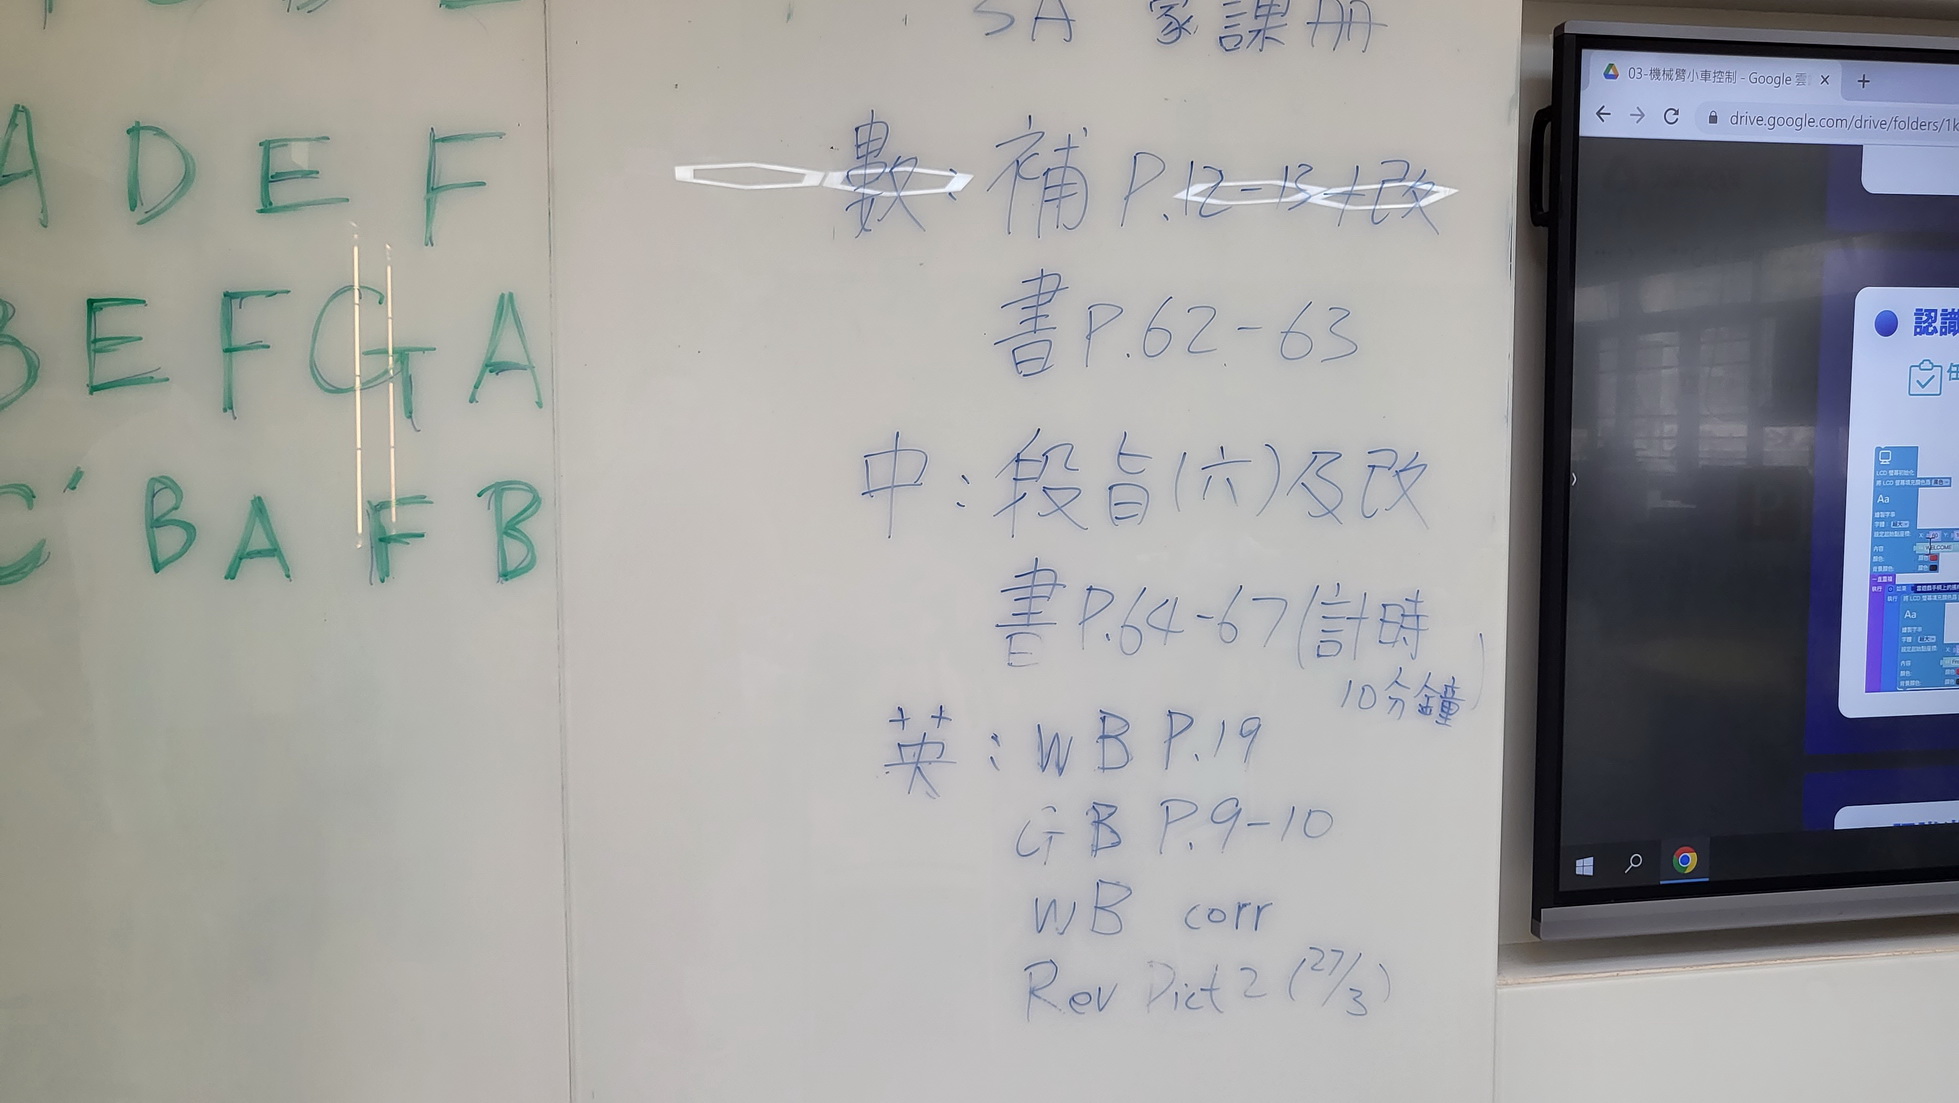 5A 家課冊
數：補 P.12-13+改
書 P.62-63
中：段旨(六)及改
書 P.64-67(計時
10分鐘)
英：WB P.19
GB P.9-10
WB corr
Rev Dict 2 (27/3)
A D E F
B E F G A
C' B A F B
03-機械臂小車控制 - Google 雲
drive.google.com/drive/folders/1k
認識
任
Aa
WELCOME
Aa